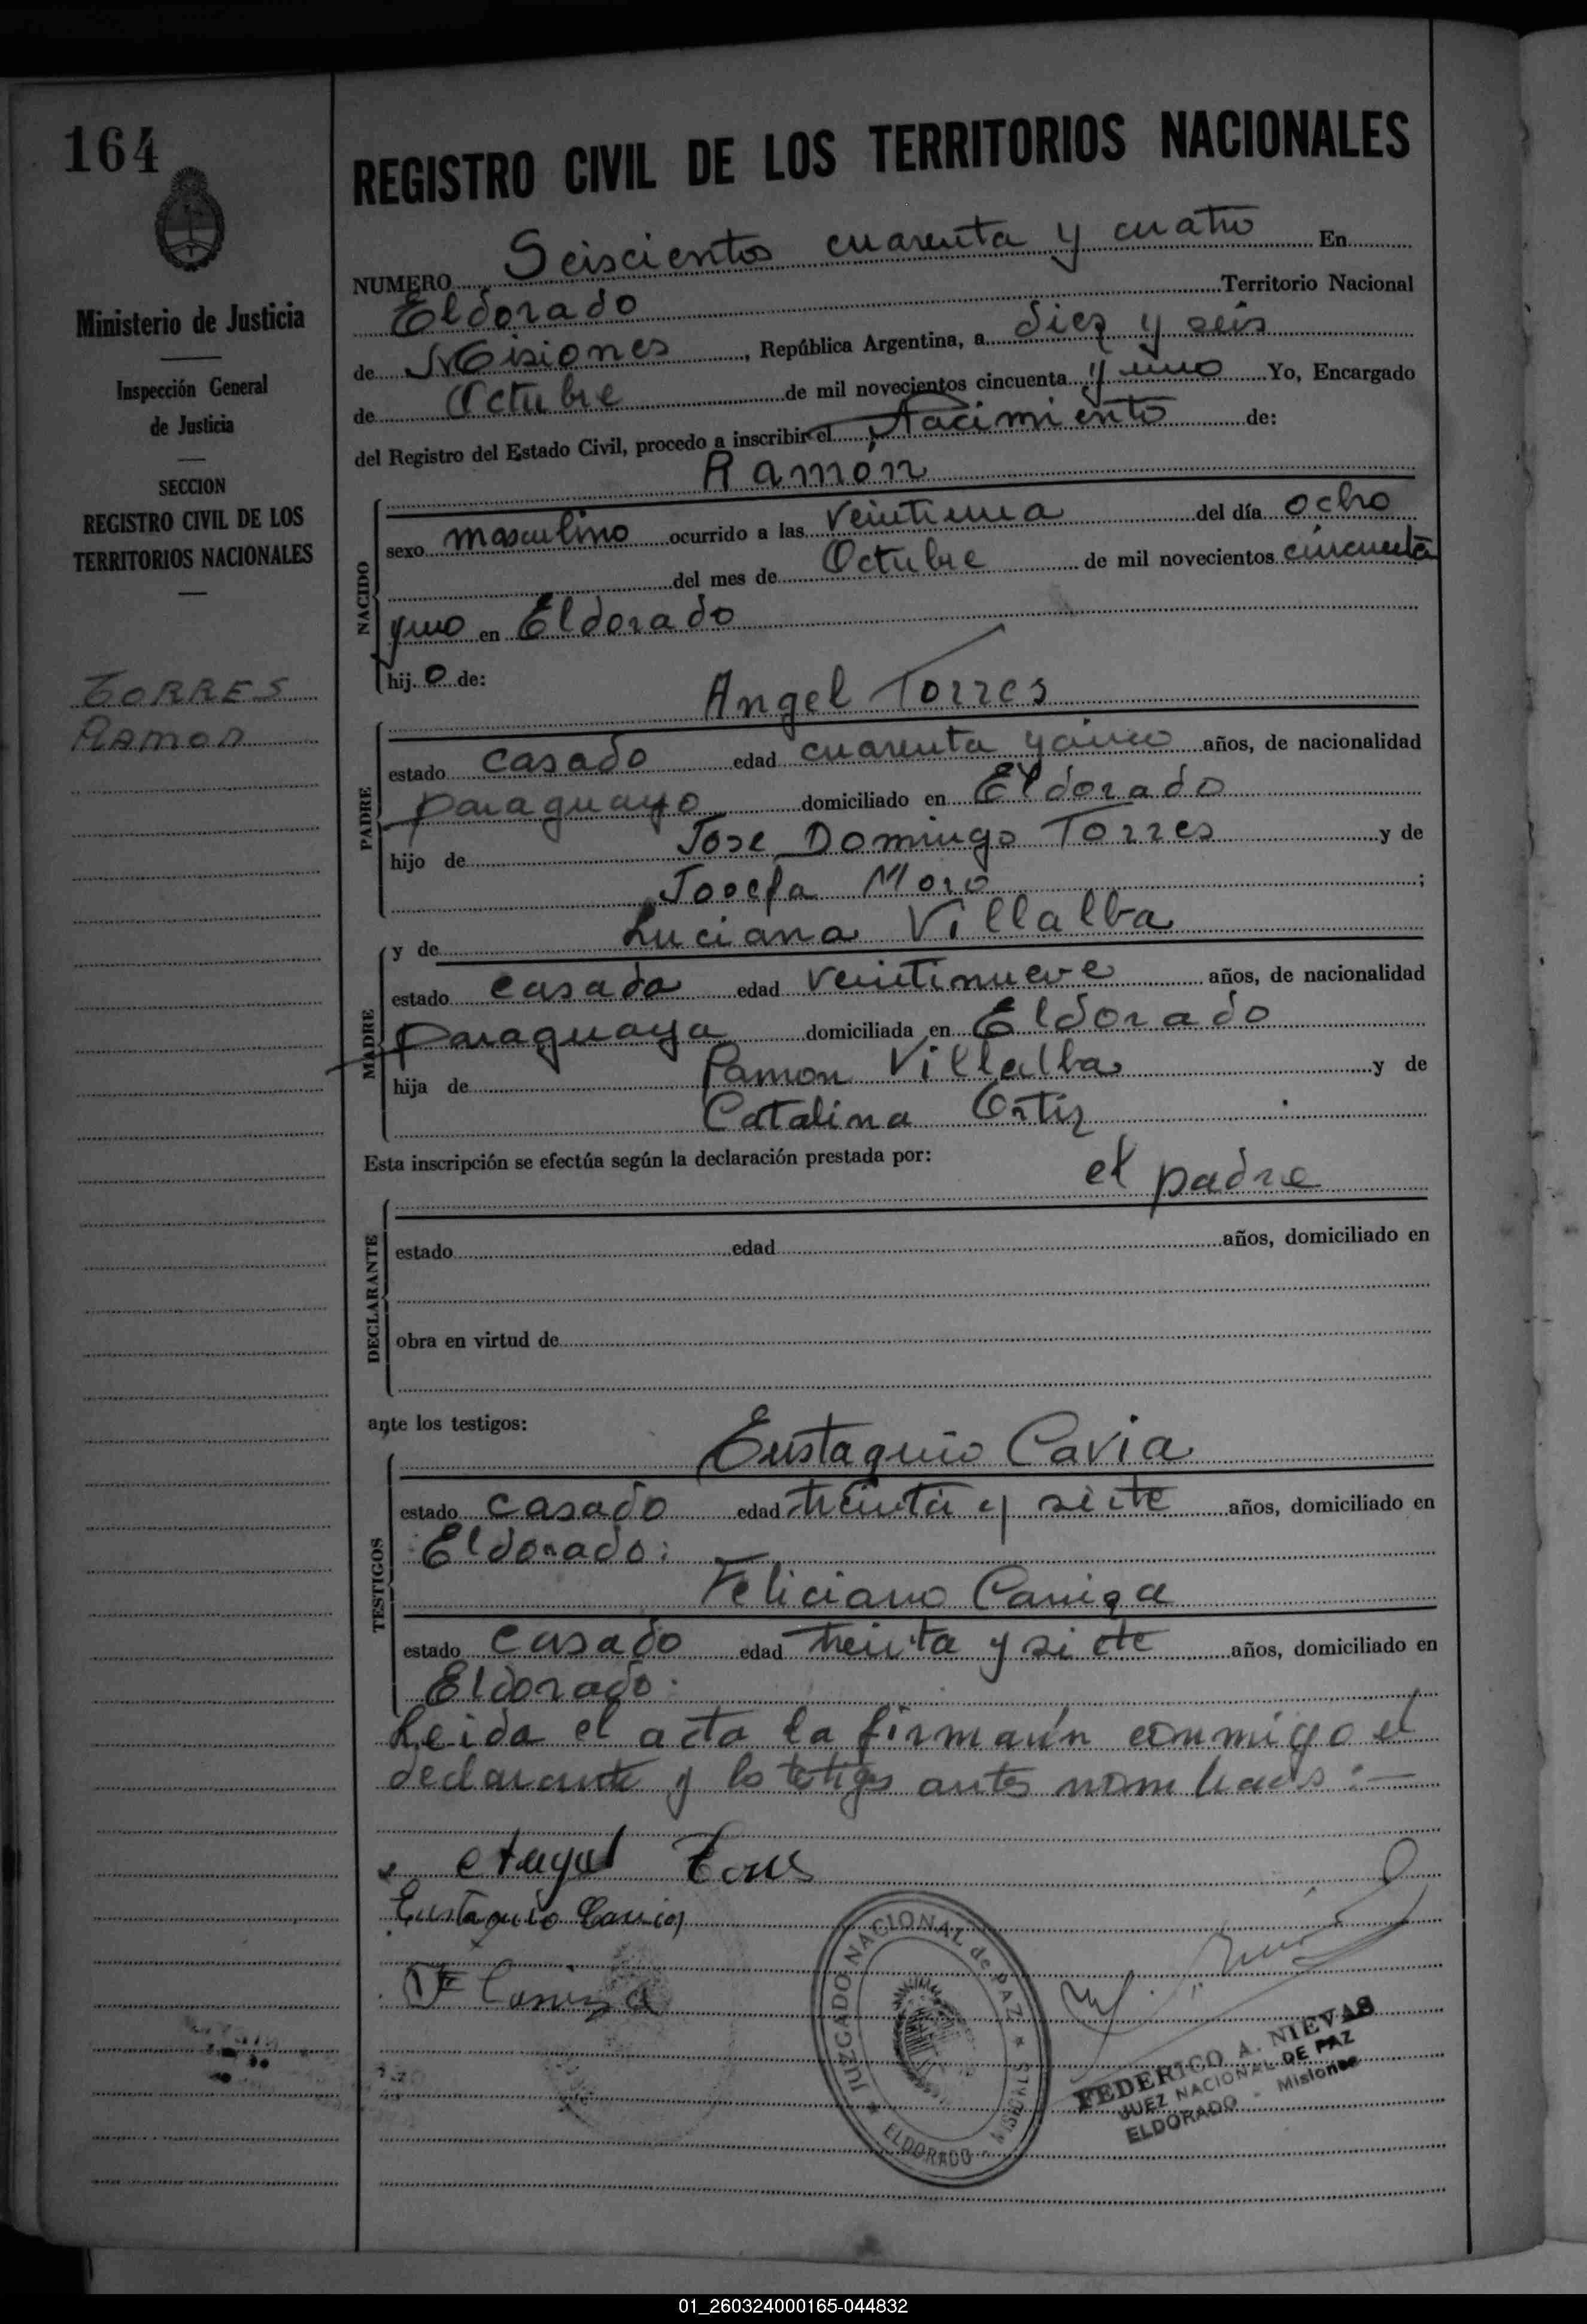 164
Ministerio de Justicia
Inspección General
de Justicia
SECCION
REGISTRO CIVIL DE LOS
TERRITORIOS NACIONALES
TORRES
RAMON
REGISTRO CIVIL DE LOS TERRITORIOS NACIONALES
NUMERO Seiscientos cuarenta y cuatro En
Eldorado Territorio Nacional
de Misiones, República Argentina, a diez y seis
de Octubre de mil novecientos cincuenta y uno Yo, Encargado
del Registro del Estado Civil, procedo a inscribir el Nacimiento de:
Ramón
NACIDO
sexo masculino ocurrido a las veintiuna del día ocho
del mes de Octubre de mil novecientos cincuenta
y uno en Eldorado
hijo de:
Angel Torres
PADRE
estado casado edad cuarenta y cinco años, de nacionalidad
paraguayo domiciliado en Eldorado
hijo de Jose Domingo Torres y de
Josefa Moro;
MADRE
y de Luciana Villalba
estado casada edad veintinueve años, de nacionalidad
paraguaya domiciliada en Eldorado
hija de Ramon Villalba y de
Catalina Ortiz
Esta inscripción se efectúa según la declaración prestada por:
el padre
DECLARANTE
estado edad años, domiciliado en
obra en virtud de
ante los testigos:
TESTIGOS
Eustaquio Cavia
estado casado edad treinta y siete años, domiciliado en
Eldorado:
Feliciano Caniza
estado casado edad treinta y siete años, domiciliado en
Eldorado.
Leida el acta la firmarán conmigo el
declarante y los testigos antes nombrados:—
Angel Torres
Eustaquio
Caniza
JUZGADO NACIONAL de PAZ
ELDORADO - MISIONES
FEDERICO A. NIEVAS
JUEZ NACIONAL DE PAZ
ELDORADO - Misiones
01_260324000165-044832